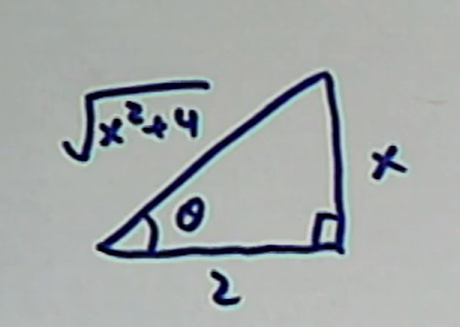 √x²+4
θ
x
2